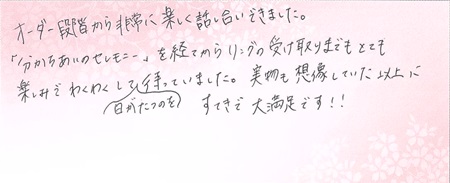 オーダー段階から非常に楽しく話し合いできました。
「分かちあいのセレモニー」を経てからリングの受け取りまでもとても
楽しみでわくわくして待っていました。実物も想像していた以上に
(日がたつのを) すてきで大満足です!!